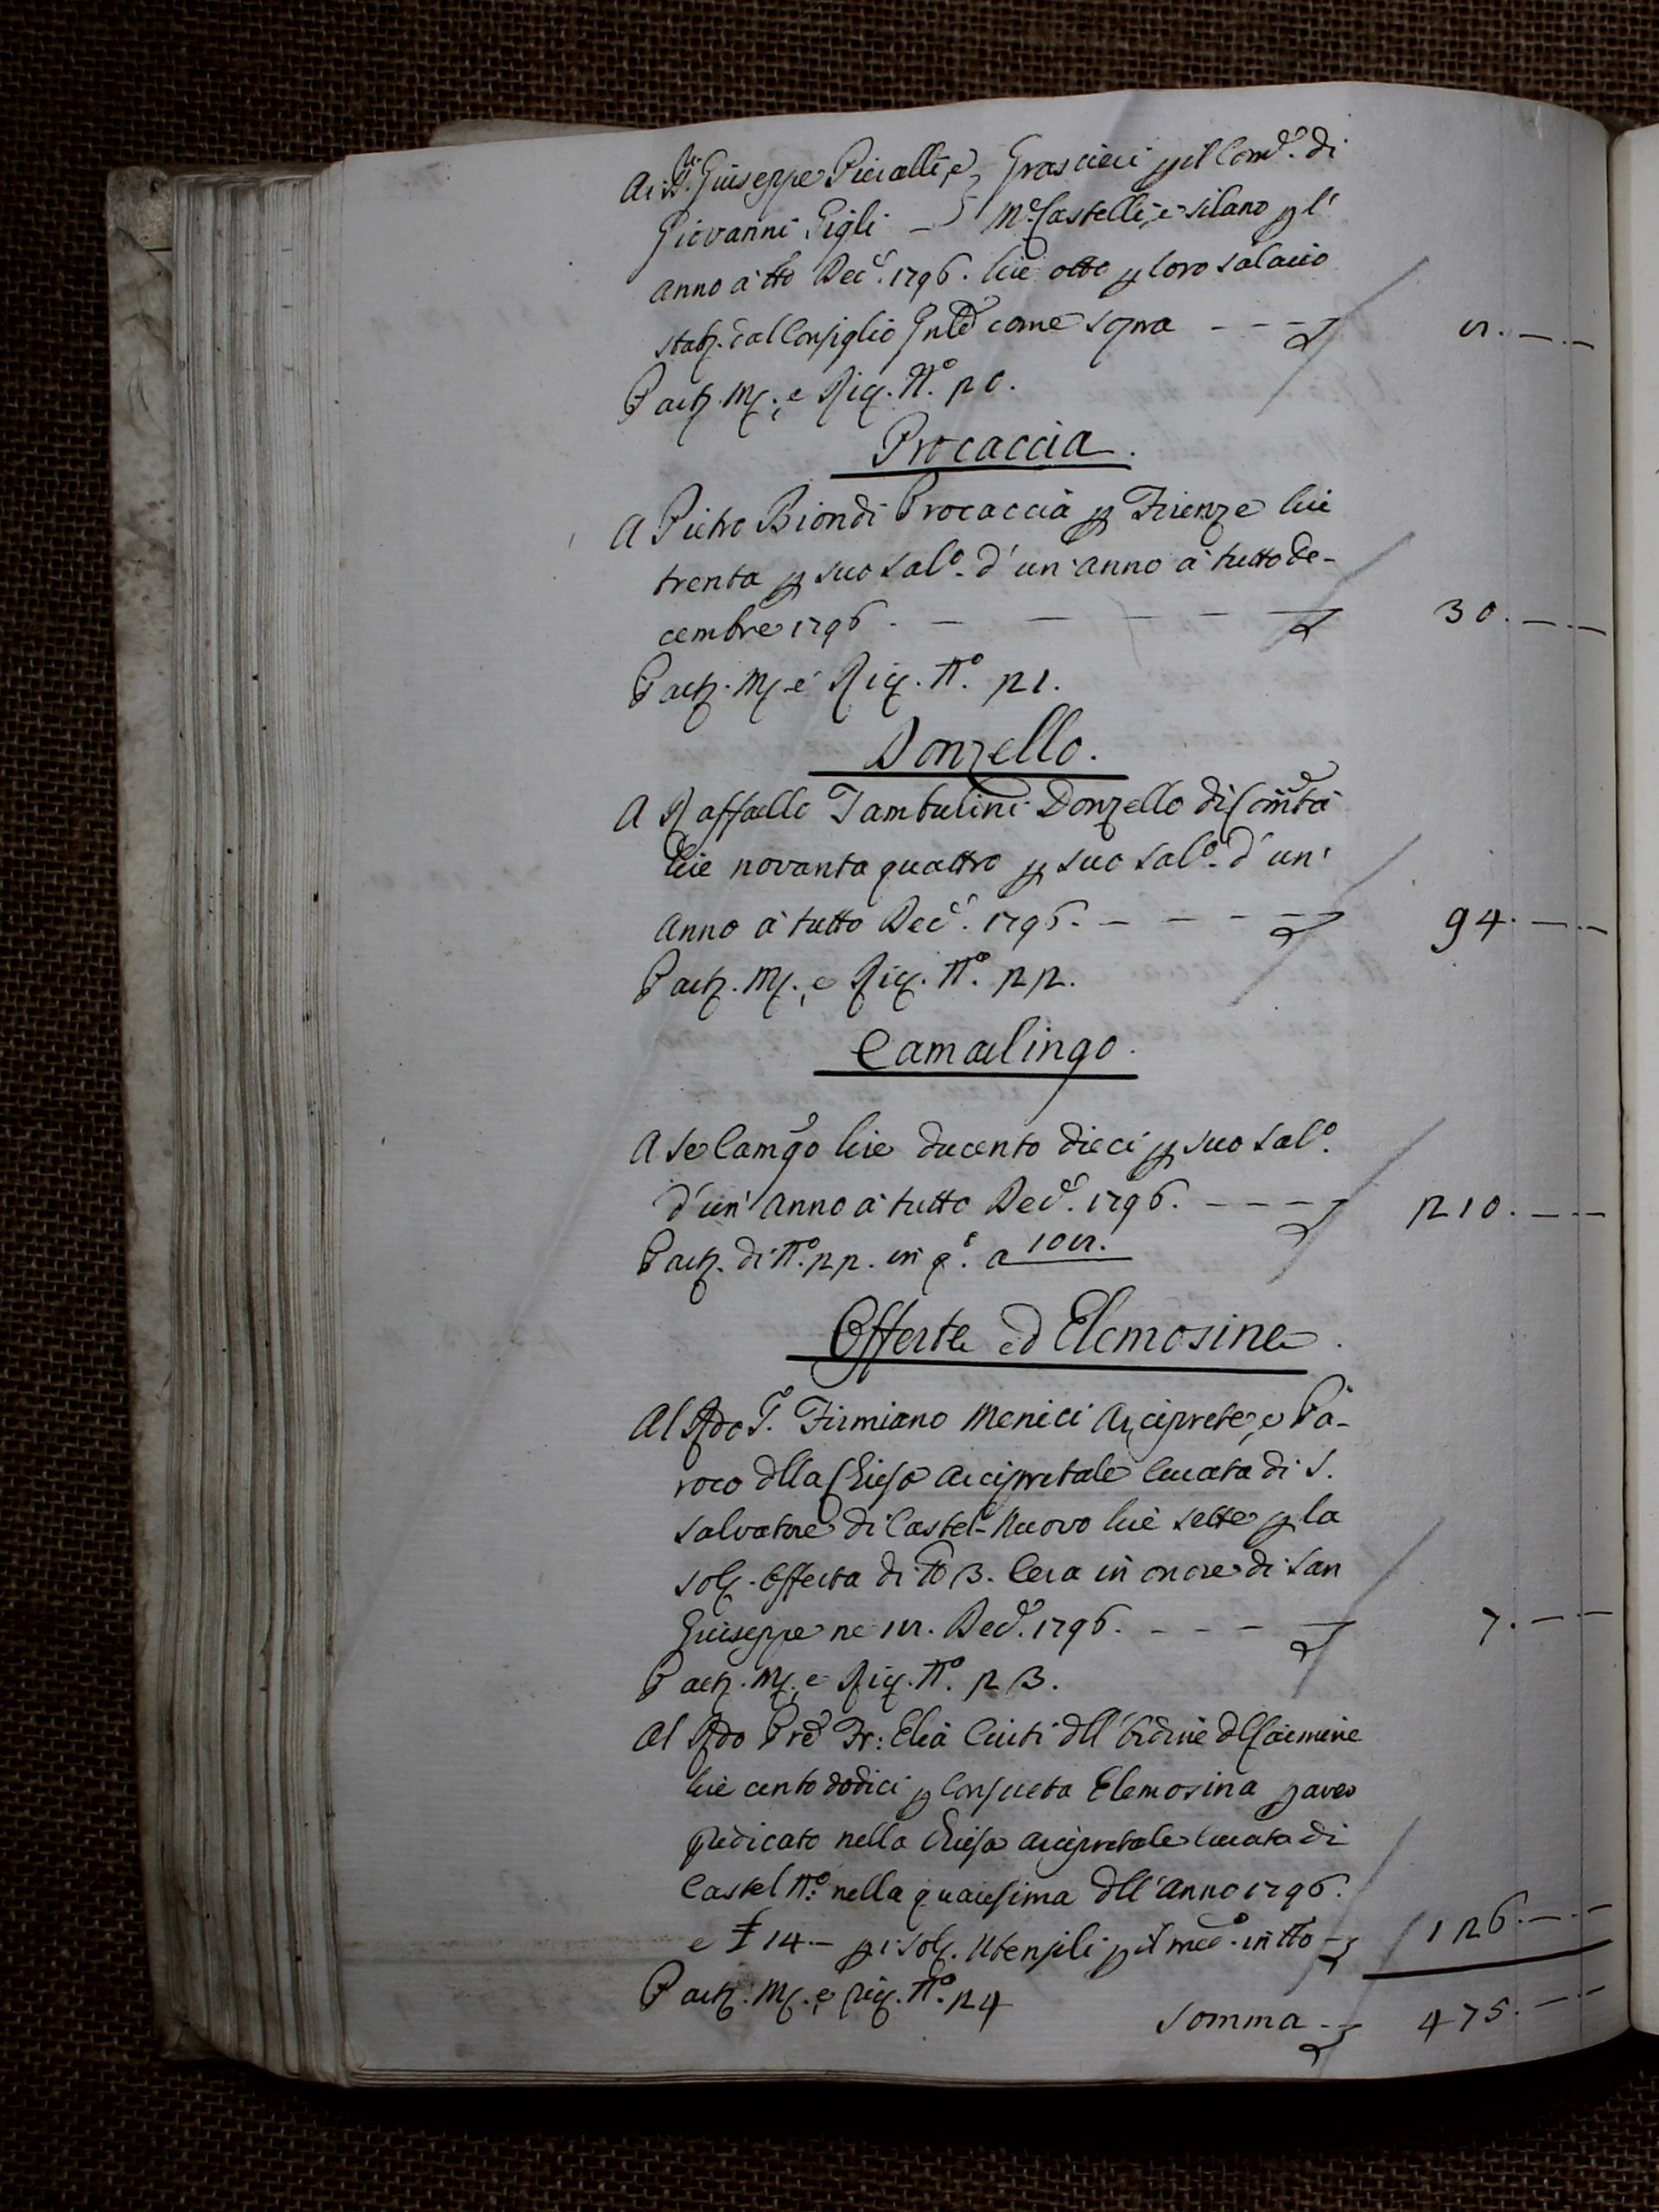 Ai SS.ri Giuseppe Picialli, e } Grascieri p il Com.e di
Giovanni Gigli — } M.e Castelli, e Silano p l'
anno a tto Dec.e 1796. lire otto p loro salario
stab. dal Consiglio Gnle come sopra - - - 8. — . —
Part. M. e Ric. N.o 20.
Procaccia.
A Pietro Biondi Procaccia p Firenze lire
trenta p suo sal.o d'un'anno a tutto De-
cembre 1796. — — — — — 30. — . —
Part. M. e Ric. N.o 21.
Donzello.
A Raffaello Tambulini Donzello di Comtà
lire novanta quattro p suo sal.o d'un'
anno a tutto Dec.e 1796. - - - - 94. — . —
Part. M. e Ric. N.o 22.
Camarlingo.
A se Cam.go lire ducento dieci p suo sal.o
d'un'anno a tutto Dec.e 1796. - - - 210. — . —
Part. di N.o 22. in q.o a 108.
Offerte ed Elemosine.
Al Rdo S. Firmiano Menici Arciprete, e Pa-
roco dlla Chiesa Arcipretale Curata di S.
Salvatore di Castel-Nuovo lire sette p la
sol. Offerta di lb 3. Cera in onore di San
Giuseppe ne 18. Dec.e 1796. - - - — 7. — . —
Part. M. e Ric. N.o 23.
Al Rdo Pre Fr: Elia Ciuti dll'Ordine dl Carmine
lire cento dodici p consueta Elemosina p aver
predicato nella Chiesa Arcipretale Curata di
Castel N.o: nella quaresima dll'Anno 1796.
e £ 14. — p i sol. Utensili p il med.o in tto — 126. — . —
Part. M. e Ric. N.o 24
Somma - - 475. — . —